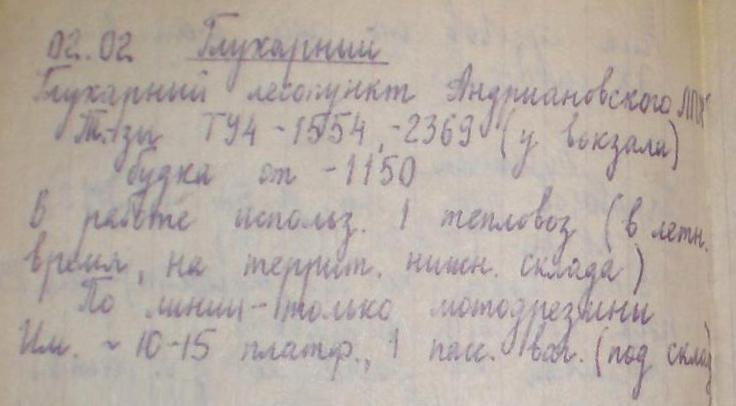 02.02 Глухарный
Глухарный лесопункт Андриановского ЛПХ
Т-зы ТУ4-1554, -2369 (у вокзала)
будка от -1150
В работе использ. 1 тепловоз (в летн.
время, на террит. нижн. склада)
По линии - только мотодрезины
Им. ~ 10-15 платф., 1 пасс. ваг. (под склад